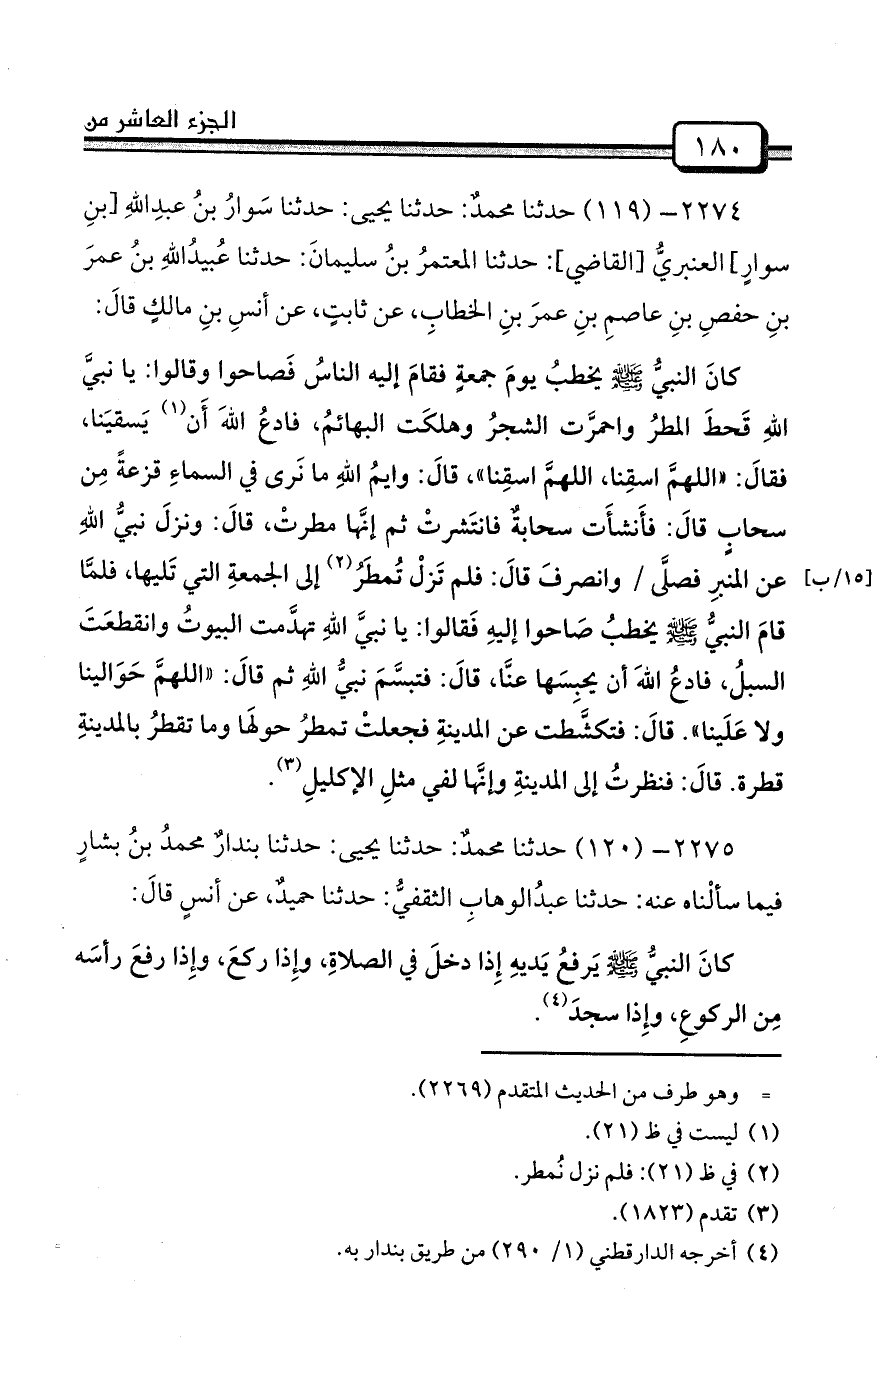 الجزء العاشر من
١٨٠
٢٢٧٤- (١١٩) حدثنا محمدٌ: حدثنا يحيى: حدثنا سَوارُ بنُ عبدِاللهِ [بنِ
سوارٍ] العنبريُّ [القاضي]: حدثنا المعتمرُ بنُ سليمانَ: حدثنا عُبيدُاللهِ بنُ عمرَ
بنِ حفصِ بنِ عاصمِ بنِ عمرَ بنِ الخطابِ، عن ثابتٍ، عن أنسِ بنِ مالكٍ قالَ:
كانَ النبيُّ ﷺ يخطبُ يومَ جمعةٍ فقامَ إليه الناسُ فَصاحوا وقالوا: يا نبيَّ
اللهِ قَحطَ المطرُ واحمرَّت الشجرُ وهلكَت البهائمُ، فادعُ اللهَ أَن(١) يَسقيَنا،
فقالَ: «اللهمَّ اسقِنا، اللهمَّ اسقِنا»، قالَ: وايمُ اللهِ ما نَرى في السماءِ قزعةً مِن
سحابٍ قالَ: فأَنشأَت سحابةٌ فانتَشرتْ ثم إنَّها مطرتْ، قالَ: ونزلَ نبيُّ اللهِ
عن المنبرِ فصلَّى / وانصرفَ قالَ: فلم تَزلْ تُمطَرُ(٢) إلى الجمعةِ التي تَليها، فلمَّا [١٥/ب]
قامَ النبيُّ ﷺ يخطبُ صَاحوا إليهِ فَقالوا: يا نبيَّ اللهِ تهدَّمت البيوتُ وانقطعَت
السبلُ، فادعُ اللهَ أن يحبِسَها عنَّا، قالَ: فتبسَّمَ نبيُّ اللهِ ثم قالَ: «اللهمَّ حَوَالينا
ولا عَلَينا». قالَ: فتكشَّطت عن المدينةِ فجعلتْ تمطرُ حولهَا وما تقطرُ بالمدينةِ
قطرة. قالَ: فنظرتُ إلى المدينةِ وإنَّها لفي مثلِ الإكليلِ(٣).
٢٢٧٥- (١٢٠) حدثنا محمدٌ: حدثنا يحيى: حدثنا بندارٌ محمدُ بنُ بشارٍ
فيما سألْناه عنه: حدثنا عبدُالوهابِ الثقفيُّ: حدثنا حميدٌ، عن أنسٍ قالَ:
كانَ النبيُّ ﷺ يَرفعُ يَديهِ إِذا دخلَ في الصلاةِ، وإِذا ركعَ، وإِذا رفعَ رأسَه
مِن الركوعِ، وإِذا سجدَ(٤).
= وهو طرف من الحديث المتقدم (٢٢٦٩).
(١) ليست في ظ (٢١).
(٢) في ظ (٢١): فلم نزل نُمطر.
(٣) تقدم (١٨٢٣).
(٤) أخرجه الدارقطني (١/ ٢٩٠) من طريق بندار به.